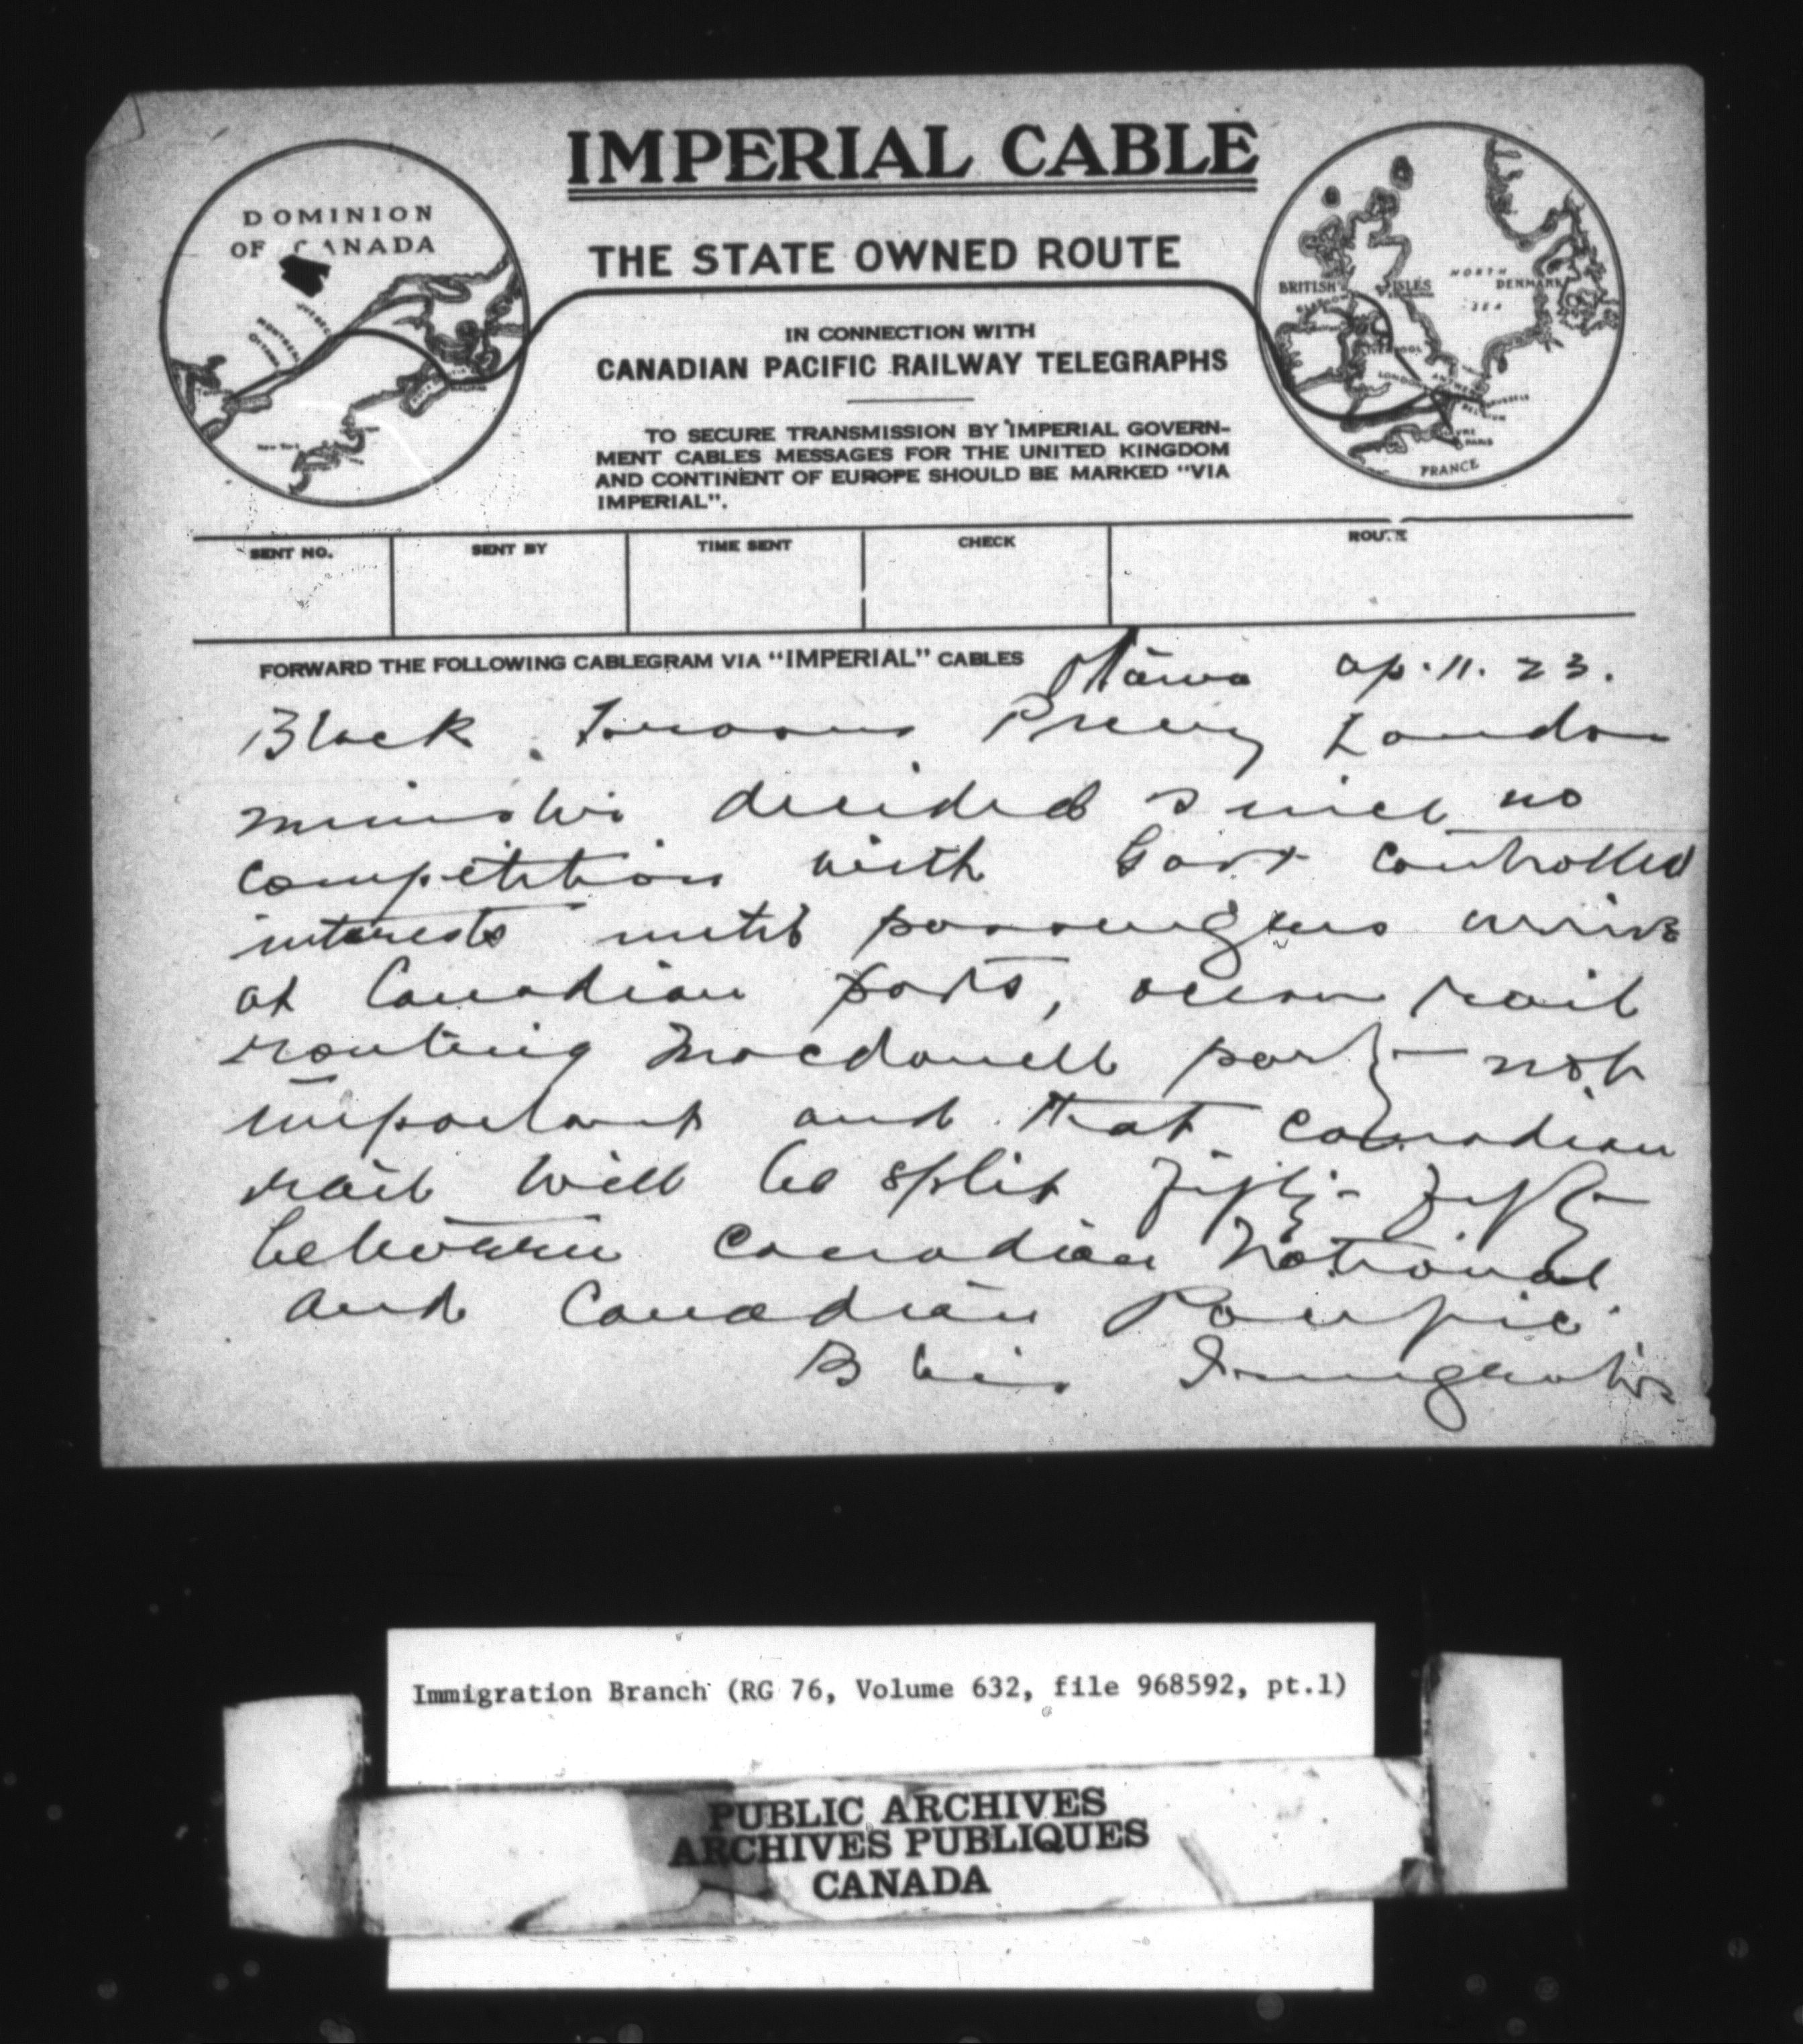 IMPERIAL CABLE
THE STATE OWNED ROUTE
DOMINION
OF CANADA
BRITISH ISLES
NORTH
SEA
DENMARK
FRANCE
IN CONNECTION WITH
CANADIAN PACIFIC RAILWAY TELEGRAPHS
TO SECURE TRANSMISSION BY IMPERIAL GOVERN-
MENT CABLES MESSAGES FOR THE UNITED KINGDOM
AND CONTINENT OF EUROPE SHOULD BE MARKED "VIA
IMPERIAL".
SENT NO. SENT BY TIME SENT CHECK ROUTE
FORWARD THE FOLLOWING CABLEGRAM VIA "IMPERIAL" CABLES
Ottawa Ap. 11. 23.
Black London
Minister decided since no
competition with Govt controlled
interests until passengers arrive
at Canadian ports, ocean rail
routing Macdonell party not
important and that Canadian
rail will be split fifty-fifty
between Canadian National
and Canadian Pacific.
Blair Immigration
Immigration Branch (RG 76, Volume 632, file 968592, pt.1)
PUBLIC ARCHIVES
ARCHIVES PUBLIQUES
CANADA